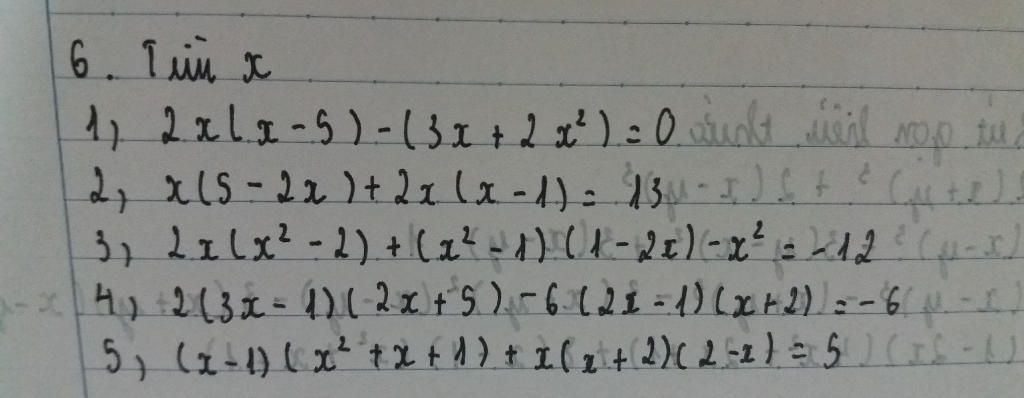 6. Tìm x
1, 2x(x - 5) - (3x + 2x²) = 0
2, x(5 - 2x) + 2x(x - 1) = 13
3, 2x(x² - 2) + (x² - 1)(1 - 2x) - x² = -12
4, 2(3x - 1)(2x + 5) - 6(2x - 1)(x + 2) = -6
5, (x - 1)(x² + x + 1) + x(x + 2)(2 - x) = 5